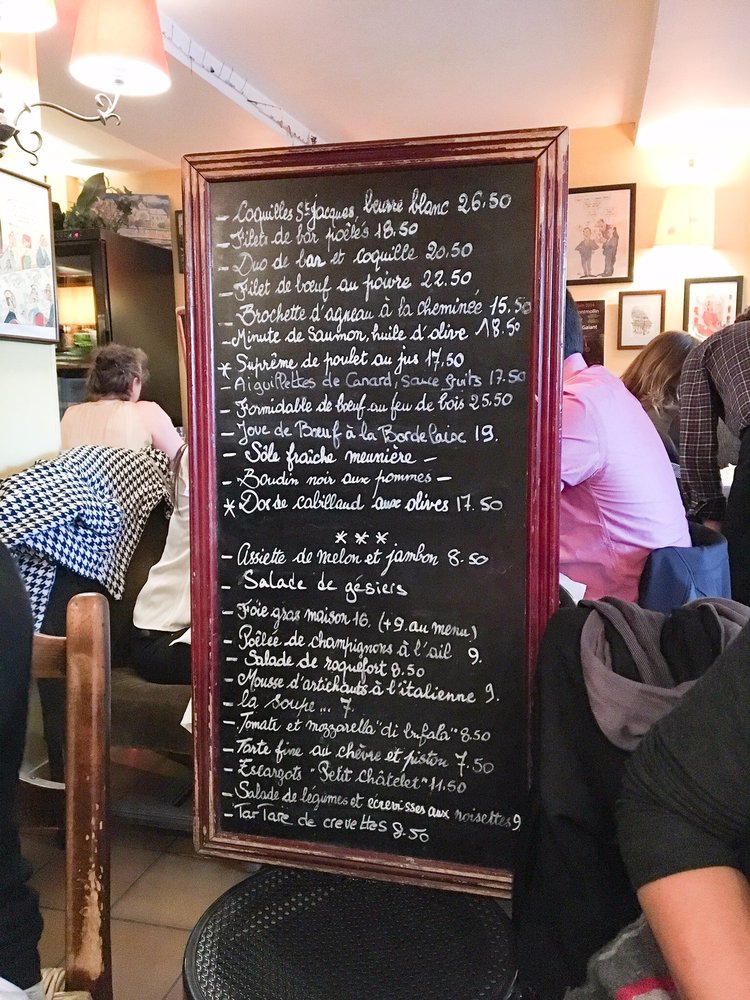 - Coquilles St Jacques, beurre blanc 26.50
- Filets de bar poêlés 18.50
- Duo de bar et coquille 20.50
- Filet de bœuf au poivre 22.50
- Brochette d'agneau à la cheminée 15.50
- Minute de Saumon, huile d'olive 18.50
* Suprême de poulet au jus 17,50
- Aiguillettes de Canard, sauce fruits 17.50
- Formidable de bœuf au feu de bois 25.50
- Joue de Bœuf à la Bordelaise 19.
- Sôle fraîche meunière -
- Boudin noir aux pommes -
* Dos de cabillaud aux olives 17.50
* * *
- Assiette de melon et jambon 8.50
- Salade de gésiers
- Foie gras maison 16. (+9. au menu)
- Poêlée de champignons à l'ail 9.
- Salade de roquefort 8.50
- Mousse d'artichauts à l'italienne 9.
- la soupe... 7.
- Tomate et mozzarella "di bufala" 8.50
- Tarte fine au chèvre et pistou 7.50
- Escargots "Petit Châtelet" 11.50
- Salade de légumes et écrevisses aux noisettes 9
- TarTare de crevettes 8.50
Galant